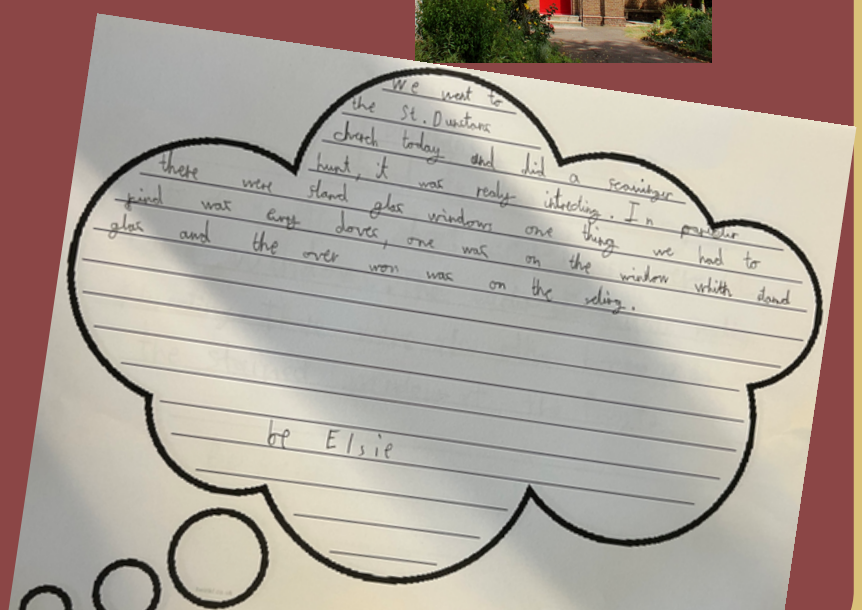 We went to
the St. Dunstans
church today and did a scavinger
hunt, it was realy intresting. In
there were stand glas windows one thing we had to
find was evry doves, one was on the window whith stand
glas and the over won was on the seling.
be Elsie